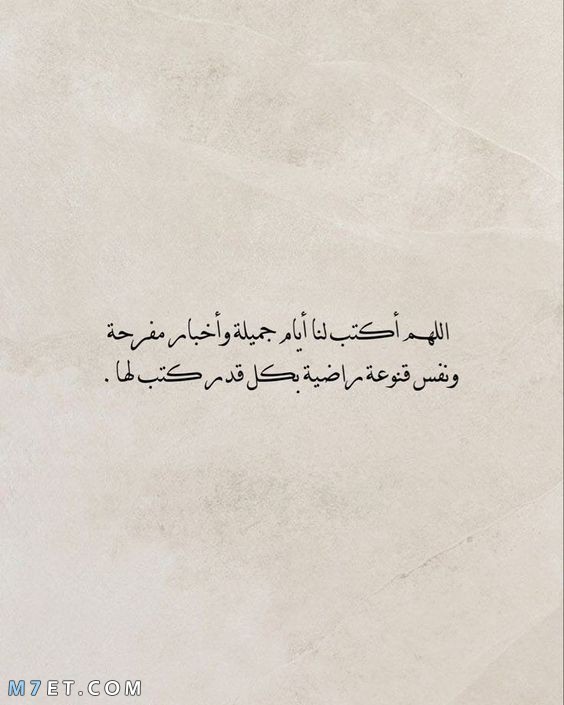 اللهم أكتب لنا أيام جميلة وأخبار مفرحة
ونفس قنوعة راضية بكل قدر كتب لها .
M7ET.COM